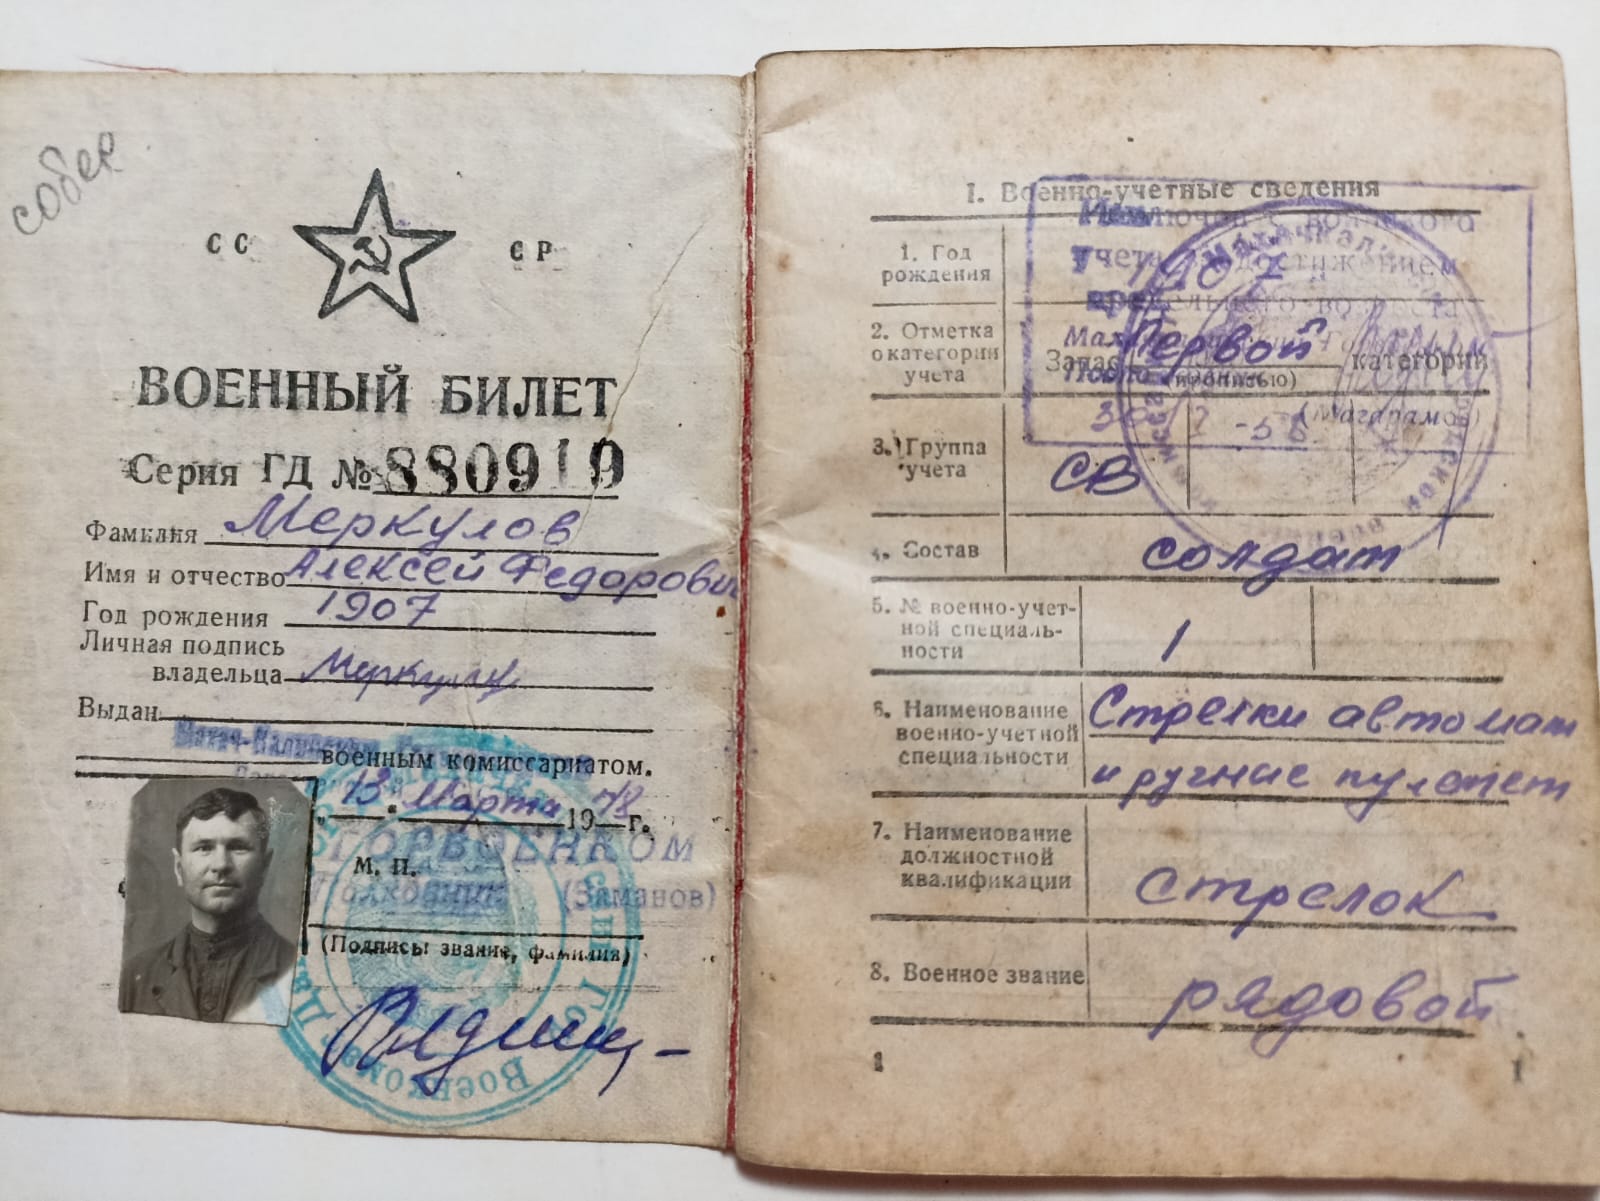 собес
СС СР
ВОЕННЫЙ БИЛЕТ
Серия ГД № 880919
Фамилия Меркулов
Имя и отчество Алексей Федорович
Год рождения 1907
Личная подпись
владельца
Выдан
военным комиссариатом.
"13" Марта 1948 г.
ГОРВОЕНКОМ
М. П.
Полковник (Заманов)
(Подпись, звание, фамилия)
I. Военно-учетные сведения
Исключен с воинского
учета за достижением
предельного возраста
(Магарамов)
1. Год
рождения
1907 г
2. Отметка
о категории
учета
Запас Первой категории
(прописью)
3. Группа
учета
СВ
4. Состав
солдат
5. № военно-учет-
ной специаль-
ности
1
6. Наименование
военно-учетной
специальности
Стрелки автомат
и ручные пулемет
7. Наименование
должностной
квалификации
стрелок
8. Военное звание
рядовой
1
1